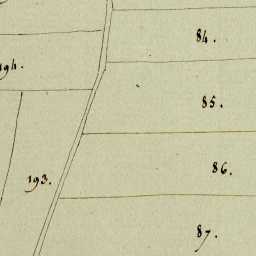 84.
194.
85.
86.
193.
87.